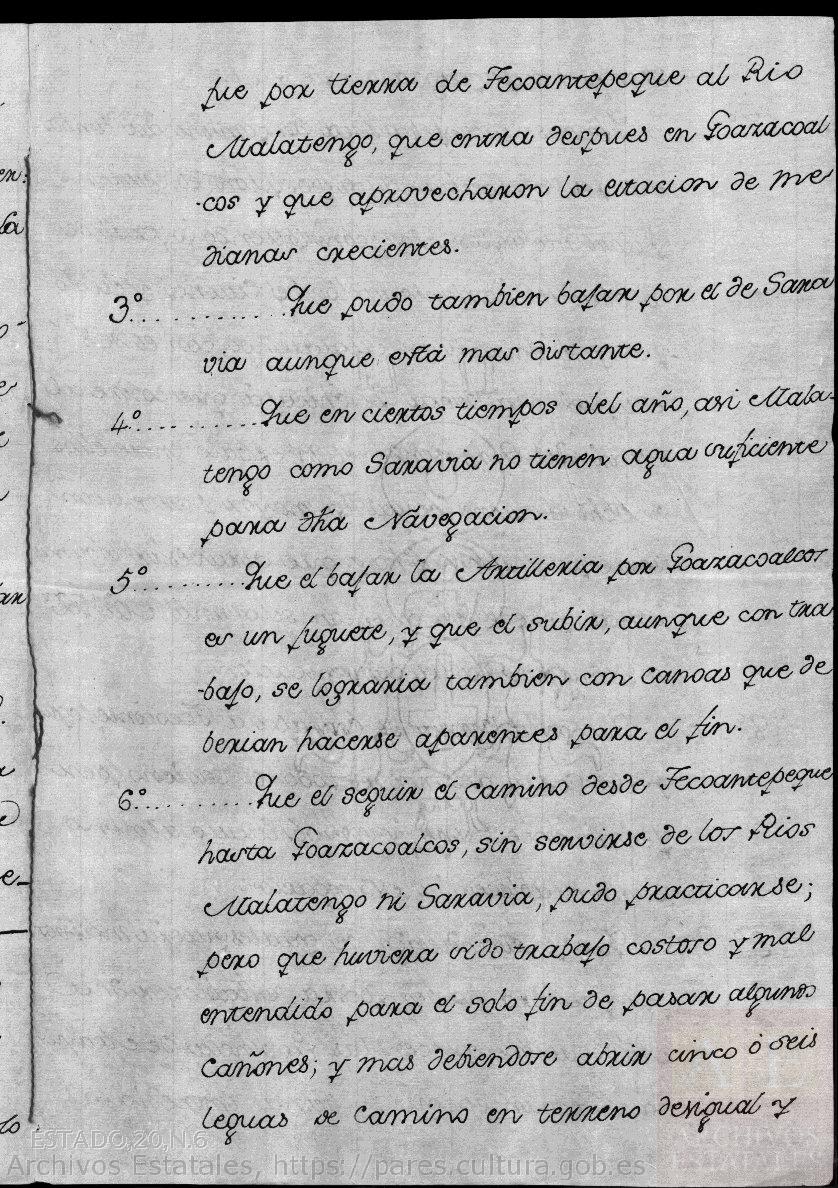 fue por tierra de Tecoantepeque al Rio
Malatengo, que entra despues en Goazacoal
cos y que aprovecharon la estacion de me
dianas crecientes.
3º............Que pudo tambien bajar por el de Sara
via aunque está mas distante.
4º............Que en ciertos tiempos del año, asi Mala-
tengo como Saravia no tienen agua suficiente
para dha Navegacion.
5º............Que el bajar la Artilleria por Goazacoalcos
es un juguete, y que el subir, aunque con tra
bajo, se lograria tambien con canoas que de
berian hacerse aparentes para el fin.
6º............Que el seguir el camino desde Tecoantepeque
hasta Goazacoalcos, sin servirse de los Rios
Malatengo ni Saravia, pudo practicarse;
pero que huviera sido trabajo costoso y mal
entendido para el solo fin de pasar algunos
cañones; y mas debiendose abrir cinco ó seis
leguas de camino en terreno desigual y
ESTADO,20,N.6
Archivos Estatales, https://pares.cultura.gob.es